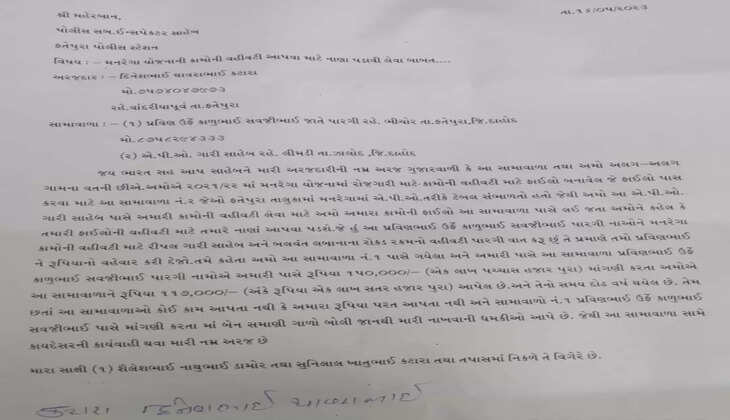 શ્રી મહેરબાન,
તા.૧૬/૦૫/૨૦૨૩
પોલીસ સબ.ઈન્સપેકટર સાહેબ
ફતેપુરા પોલીસ સ્ટેશન
વિષય : – મનરેગા યોજનાની કામોની વહીવટી આપવા માટે નાણા પડાવી લેવા બાબત....
અરજદાર : – દિનેશભાઈ ચાવરાભાઈ કટારા
મો.૭૫૭૪૦૪૭૯૭૩
રહે.ચાંદરીયાપૂર્વ તા.ફતેપુરા
સામાવાળા : – (૧) પ્રવિણ ઉર્ફે કાળુભાઈ સવજીભાઈ જાતે પારગી રહે. ભીચોર તા.ફતેપુરા,જિ.દાહોદ
મો.૮૭૫૮૨૯૪૩૩૩
(૨) એ.પી.ઓ. ગારી સાહેબ રહે. લીમડી તા.ઝાલોદ ,જિ.દાહોદ
જય ભારત સહ આપ સાહેબને મારી અરજદારીની નમ્ર અરજ ગુજારવાની કે આ સામાવાળા તથા અમો અલગ–અલગ
ગામના વતની છીએ.અમોએ ૨૦૨૧/૨૨ માં મનરેગા યોજનામાં રોજગારી માટે કામોની વહીવટી માટે ફાઈલો બનાવેલ જે ફાઈલો પાસ
કરવા માટે આ સામાવાળા નં.૨ જેઓ ફતેપુરા તાલુકામાં મનરેગામાં એ.પી.ઓ.તરીકે ટેબલ સંભાળતો હતો જેથી અમો આ એ.પી.ઓ.
ગારી સાહેબ પાસે અમારી કામોની વહીવટી લેવા માટે અમો અમારા કામોની ફાઈલો આ સામાવાળા પાસે લઈ જતા અમોને કહેલ કે
તમારી ફાઈલોની વહીવટી માટે તમારે નાણાં આપવા પડશે.જે હું આ પ્રવિણભાઈ ઉર્ફે કાળુભાઈ સવજીભાઈ પારગી નાઓને મનરેગા
કામોની વહીવટી માટે રીપલ ગારી સાહેબ અને બળવંત લબાનાના રોકડ રકમનો વહીવટી પારગી વાત કરૂ છું તે પ્રમાણે તમો પ્રવિણભાઈ
ને રૂપિયાનો વહેવાર કરી દેજો.તેમ કહેતા અમો આ સામાવાળા નં.૧ પાસે ગયેલા અને અમારી પાસે આ સામાવાળા પ્રવિણભાઈ ઉર્ફે
કાળુભાઈ સવજીભાઈ પારગી નામોએ અમારી પાસે રૂપિયા ૧૫૦,૦૦૦/– (એક લાખ પચ્ચાસ હજાર પુરા) માંગણી કરતા અમોએ
આ સામાવાળાને રૂપિયા ૧૧૭,૦૦૦/– (અંકે રૂપીયા એક લાખ સતર હજાર પુરા) આપેલ છે.અને તેનો સમય દોઢ વર્ષ થયેલ છે. તેમ
છતાં આ સામાવાળાઓ કોઈ કામ આપતા નથી કે અમારા રૂપિયા પરત આપતા નથી અને સામાવાળો નં.૧ પ્રવણભાઈ ઉર્ફે કાળુભાઈ
સવજીભાઈ પાસે માંગણી કરતા માં બેન સમાણી ગાળો બોલી જાનથી મારી નાખવાની ધમકીઓ આપે છે. જેથી આ સામાવાળા સામે
કાયદેસરની કાર્યવાહી થવા મારી નમ્ર અરજ છે
મારા સાક્ષી (૧) શૈલેશભાઈ નાથુભાઈ ડામોર તથા સુનિલાલ ખાતુભાઈ કટારા તથા તપાસમાં નિકળે તે વિગેરે છે.
કટારા દિનેશભાઈ